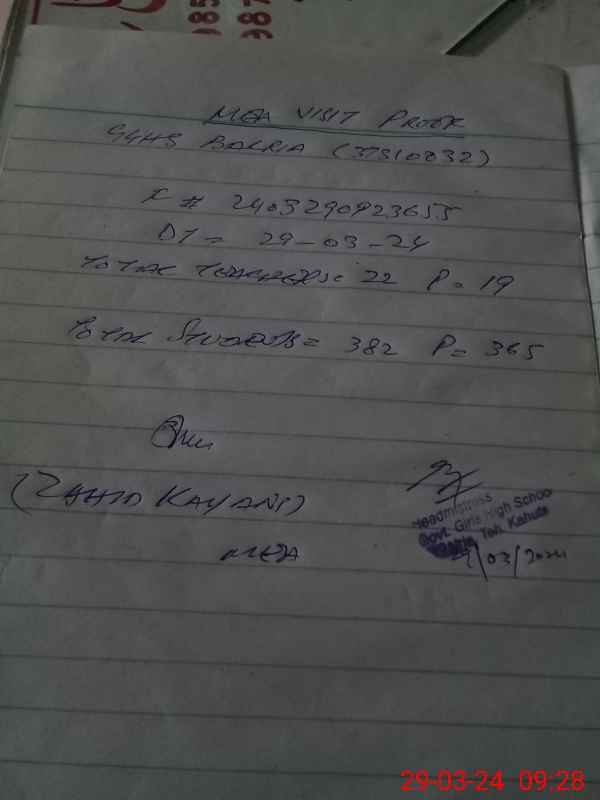 985
987
MEA VISIT PROOF
GGHS BALRIA (37310832)
X # 2403290923655
DT = 29-03-24
TOTAL TEACHERS: 22 P= 19
TOTAL STUDENTS = 382 P= 365
(ZAHID KAYANI)
MEA
Headmistress
Govt. Girls High School
Teh. Kahuta
/03/2024
29-03-24 09:28